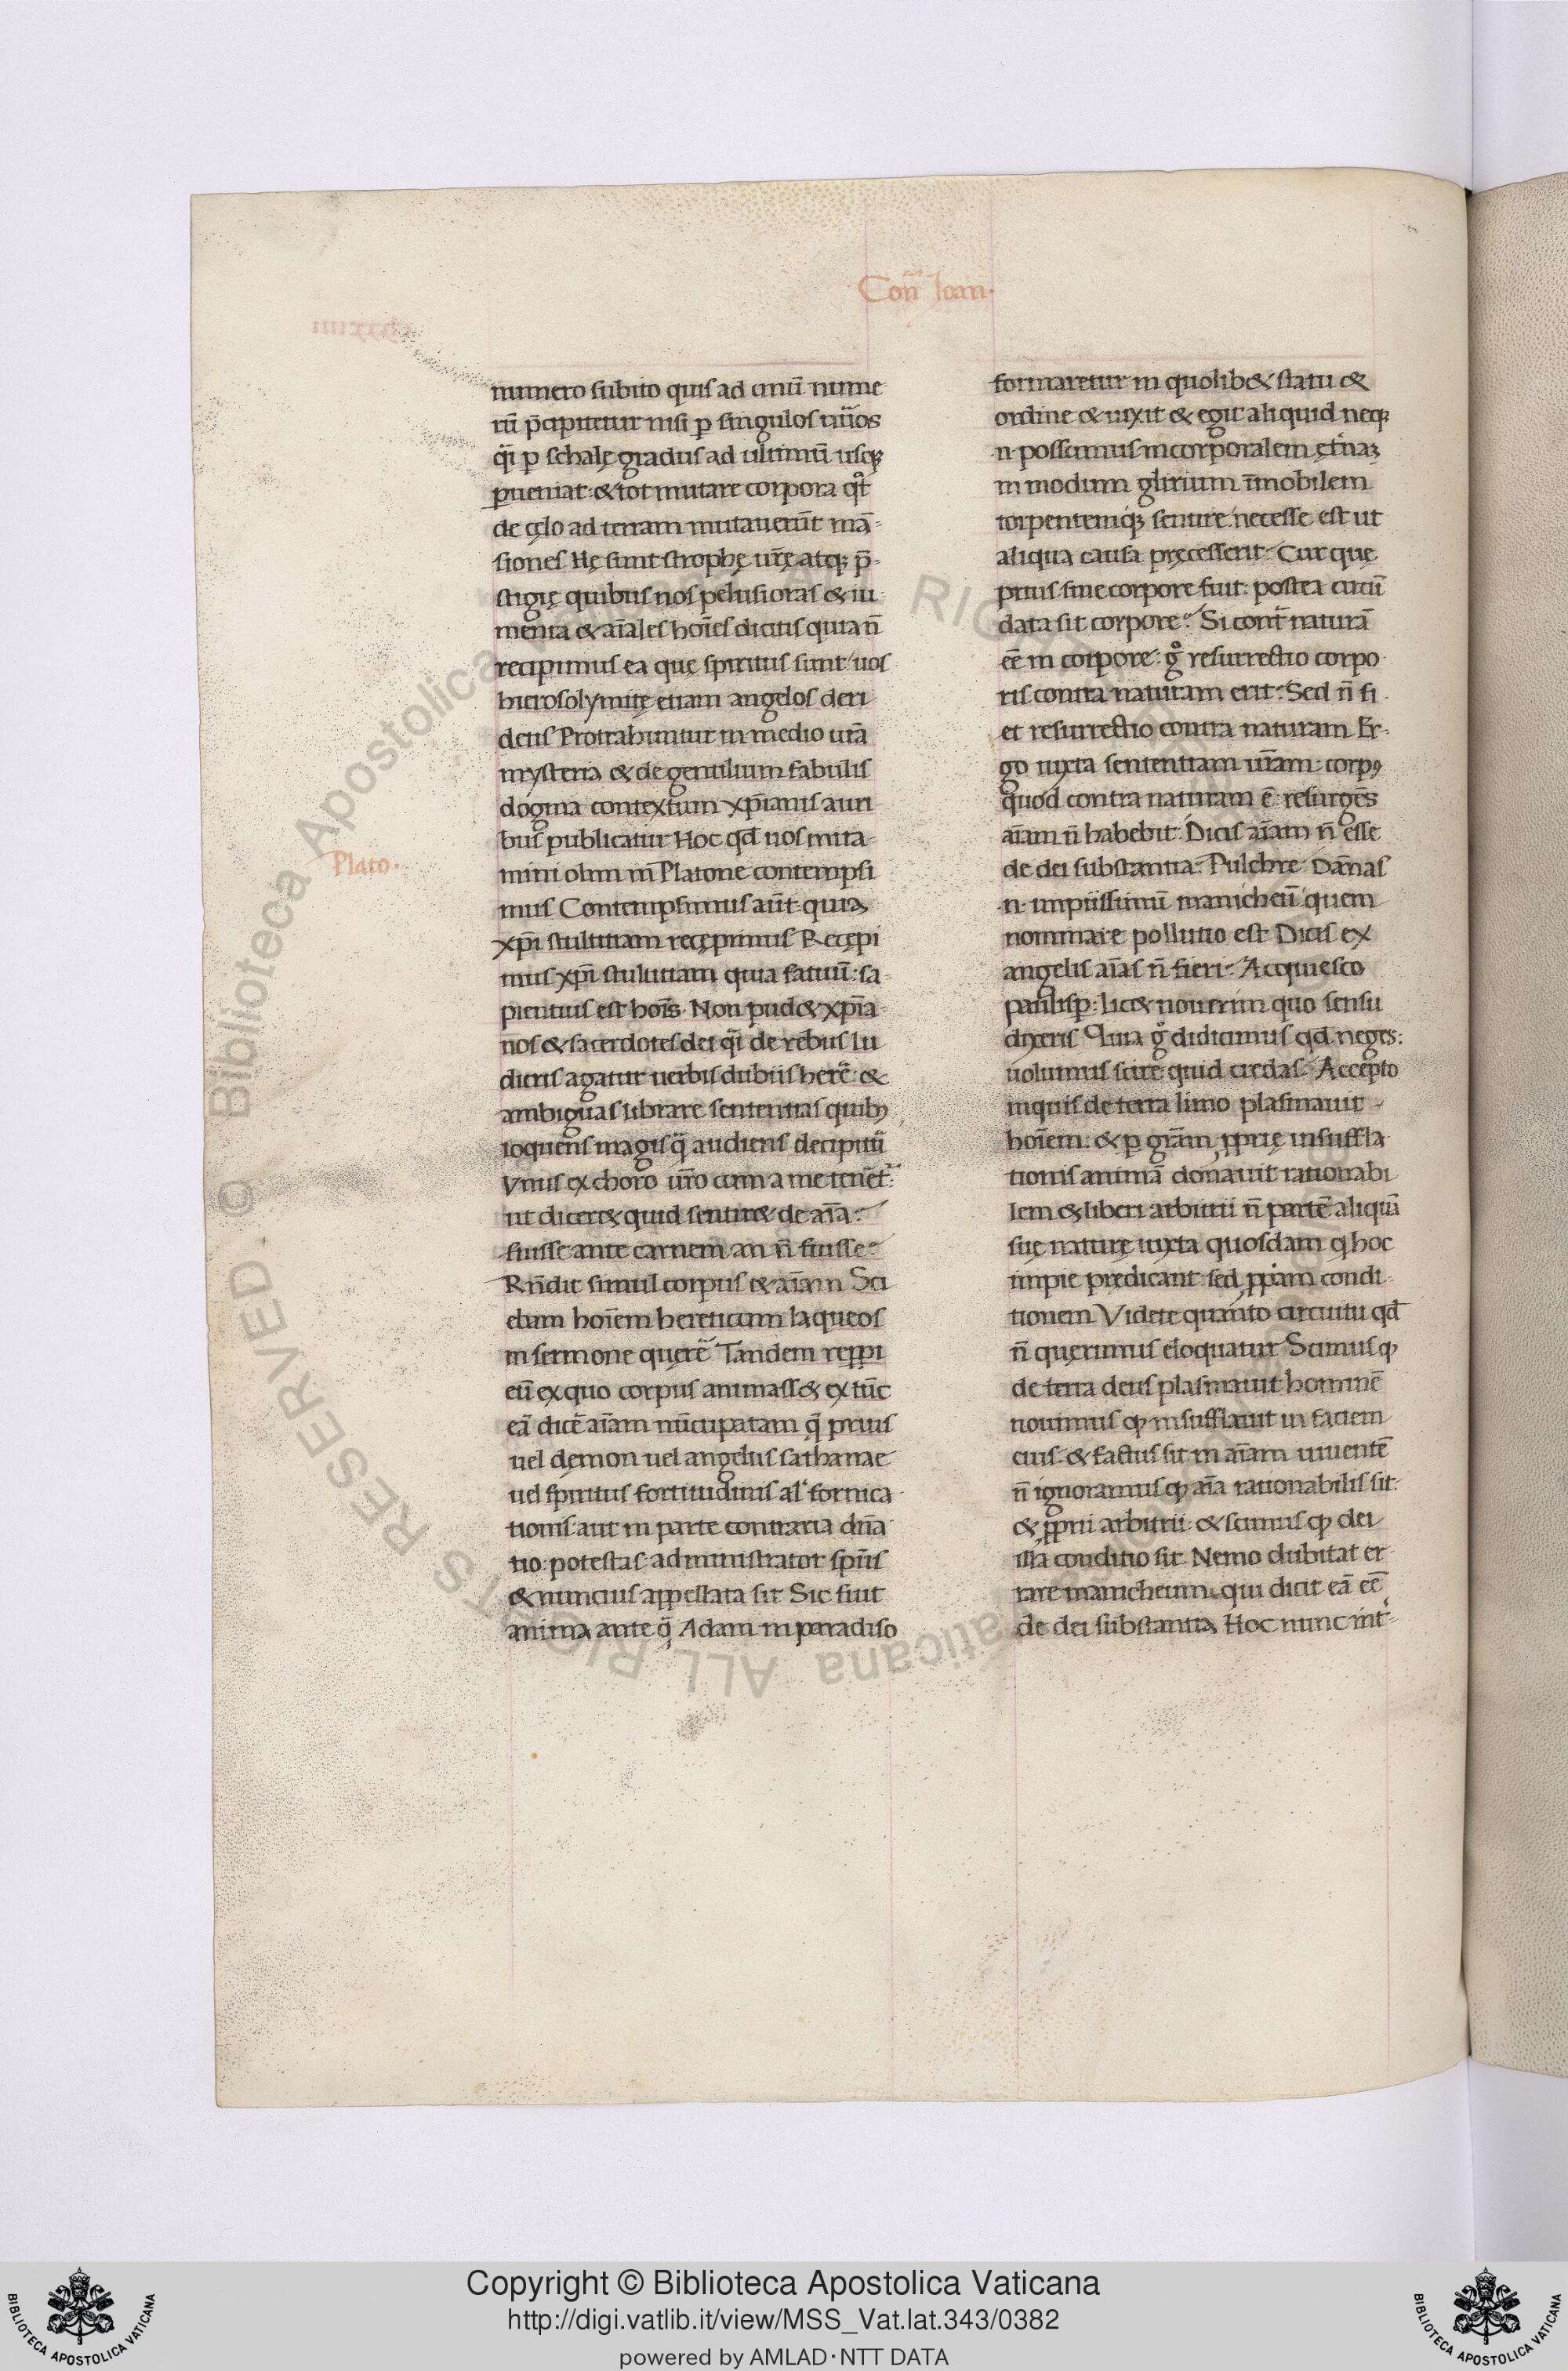 Con̄ Ioan·
Plato·
numero subito quis ad unū nume
rū p̄cipitetur nisi p singulos nūos
q̄i p schalę gradus ad ultimū usq;
pueniat: & tot mutare corpora qt̄
de cęlo ad terram mutauerūt mā-
siones Hę sunt strophę ur̄ę atq; p̄-
stigię quibus nos pelusiotas & iu
menta & aīales hoīes dicitis quia n̄
recipimus ea que spiritus sunt uos
hierosolymitę etiam angelos deri
detis Protrahuntur in medio ur̄a
mysteria & de gentilium fabulis
dogma contextum xp̄ianis auri
bus publicatur Hoc qd̄ uos mira-
mini olim in Platone contempsi
mus Contempsimus aūt: quia
xp̄i stultitiam recępimus Recępi
mus xp̄i stulutiam quia fatuū: sa-
pientius est hoīs· Non pud& xp̄ia-
nos & sacerdotes dei q̄i de rebus lu
dicris agatur uerbis dubiis herē: &
ambiguas librare sententias quib;
loquens magis q̄ audiens decipitū
Vnus ex choro ūro cum a me tenēt̄:
ut dicer& quid sentir& de aīa:
fuisse ante carnem an n̄ fuisse
Rn̄dit simul corpus & aīam Sci
ebam hoīem hereticum laqueos
in sermone querē Tandem reppi
eū ex quo corpus animass& ex tūc
eā dicē aīam nūcupatam q̄ prius
uel demon uel angelus sathanae
uel spiritus fortitudinis al' fornica-
tionis: aut in parte contraria dn̄a
tio: potestas: administrator: spūs
& nuncius appellata sit Sic fuit
anima ante q̄ Adam in paradiso
formaretur in quolib& statu &
ordine & uixit & egit aliquid neq;
n· possumus incorporalem ęt̄naz
in modum glirium īmobilem
torpentemq; sentire: necesse est ut
aliqua causa pręcesserit Cur quę
prius sine corpore fuit: postea circū
data sit corpore Si cont̄ naturā
eē in corpore: gͦ resurrectio corpo
ris contra naturam erit: Sed n̄ fi
et resurrectio contra naturam Er-
go iuxta sententiam ur̄am: corpꝰ
quod contra naturam ē: resurgēs
aīam n̄ habebit Dicis aīam n̄ esse
de dei substantia Pulchre Dānas
n· impiissimū manicheū quem
nominare pollutio est Dicis ex
angelis aīas n̄ fieri Acquiesco
paulisp: lic& nouerim quo sensu
dixeris Quia gͦ didicimus qd neges:
uolumus scire quid credas Accepto
inquis de terra limo plasmauit
hoīem: & p grām pprię insuffla
tionis animā donauit rationabi
lem & liberi arbitrii n̄ partē aliquā
suę naturę iuxta quosdam q hoc
impie prędicant: sed ppam condi
tionem Videte quanto circuitu qd̄
n̄ quęrimus eloquatur Scimus ꝙ
de terra deus plasmauit hominē
nouimus ꝙ insufflauit in faciem
eius & factus sit in aīam uiuentē
n̄ ignoramus ꝙ aīa rationabilis sit:
& pprii arbitrii: & scimus ꝙ dei
ista conditio sit Nemo dubitat er-
rare manicheum qui dicit eā eē
de dei substantia Hoc nunc int̄-
Copyright © Biblioteca Apostolica Vaticana
http://digi.vatlib.it/view/MSS_Vat.lat.343/0382
powered by AMLAD·NTT DATA
BIBLIOTECA APOSTOLICA VATICANA
BIBLIOTECA APOSTOLICA VATICANA